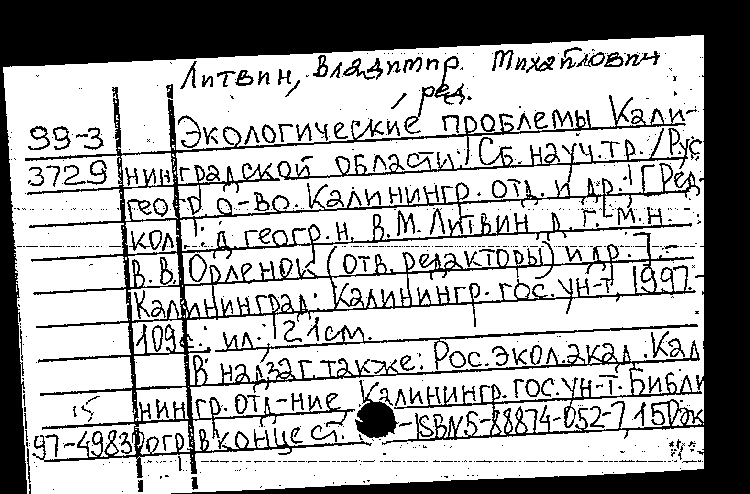 Литвин, Владимир Михайлович
, ред.
99-3 Экологические проблемы Кали-
3729 нинградской области: Сб. науч. тр. / Рус
геогр о-во. Калинингр. отд. и др.; [Ред-
кол.: д. геогр. н. В. М. Литвин, д. г.-м. н.
В. В. Орленок (отв. редакторы) и др.]. -
Калининград: Калинингр. гос. ун-т, 1997.-
109 с.: ил.; 21 см.
В надзаг. также: Рос. экол. акад. Кал
15 нингр. отд-ние, Калинингр. гос. ун-т. Библи
97-4983 огр. в конце ст. - ISBN 5-88874-052-7, 150 эк